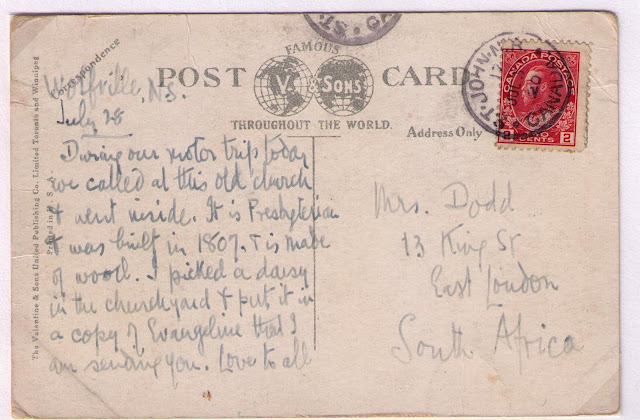 FAMOUS
POST CARD
V. & SONS
THROUGHOUT THE WORLD.
Correspondence
Address Only
The Valentine & Sons United Publishing Co. Limited Toronto and Winnipeg
Printed in
Wolfville, N.S.
July 28
During our motor trip today
we called at this old church
& went inside. It is Presbyterian
& was built in 1807. & is made
of wood. I picked a daisy
in the churchyard & put it in
a copy of Evangeline that I
am sending you. Love to all
ST. JOHN
CANADA
CANADA POSTAGE
2 CENTS 2
Mrs. Dodd
13 King St
East London
South Africa